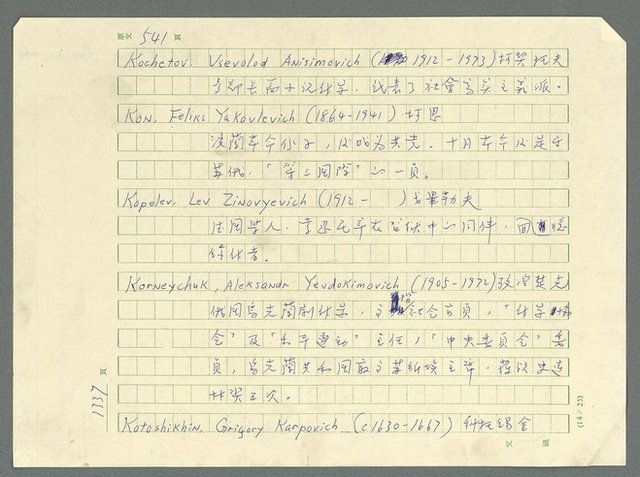 541 頁
Kochetov, Vsevolod Anisimovich (1912-1973) 柯契托夫
多部長篇小说作家,代表了社會写实主義派。
KON, Feliks Yakovlevich (1864-1941) 柯恩
波蘭革命份子,後成为共党。十月革命後定居
苏俄,「第三國際」一員。
Kopelev, Lev Zinovyevich (1912- )
法國學人,索忍尼辛在 中的同伴,回憶
錄作者。
Korneychuk, Aleksandr Yevdokimovich (1905-1972)
俄國烏克蘭劇作家, 會員,「作家協
會」及「和平運動」主任,「中央委員会」委
員,烏克蘭共和國最高苏維埃主席,獲 史達
林奖五次。
Kotoshikhin, Grigory Karpovich (c1630-1667)
1337 頁
(14×25)